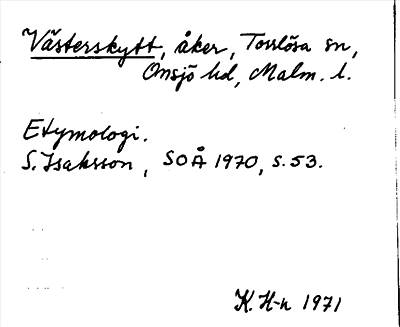 Västerskytt, åker, Torrlösa sn,
Onsjö hd, Malm. l.
Etymologi.
S. Isaksson, SOÅ 1970, s. 53.
K. H-n 1971